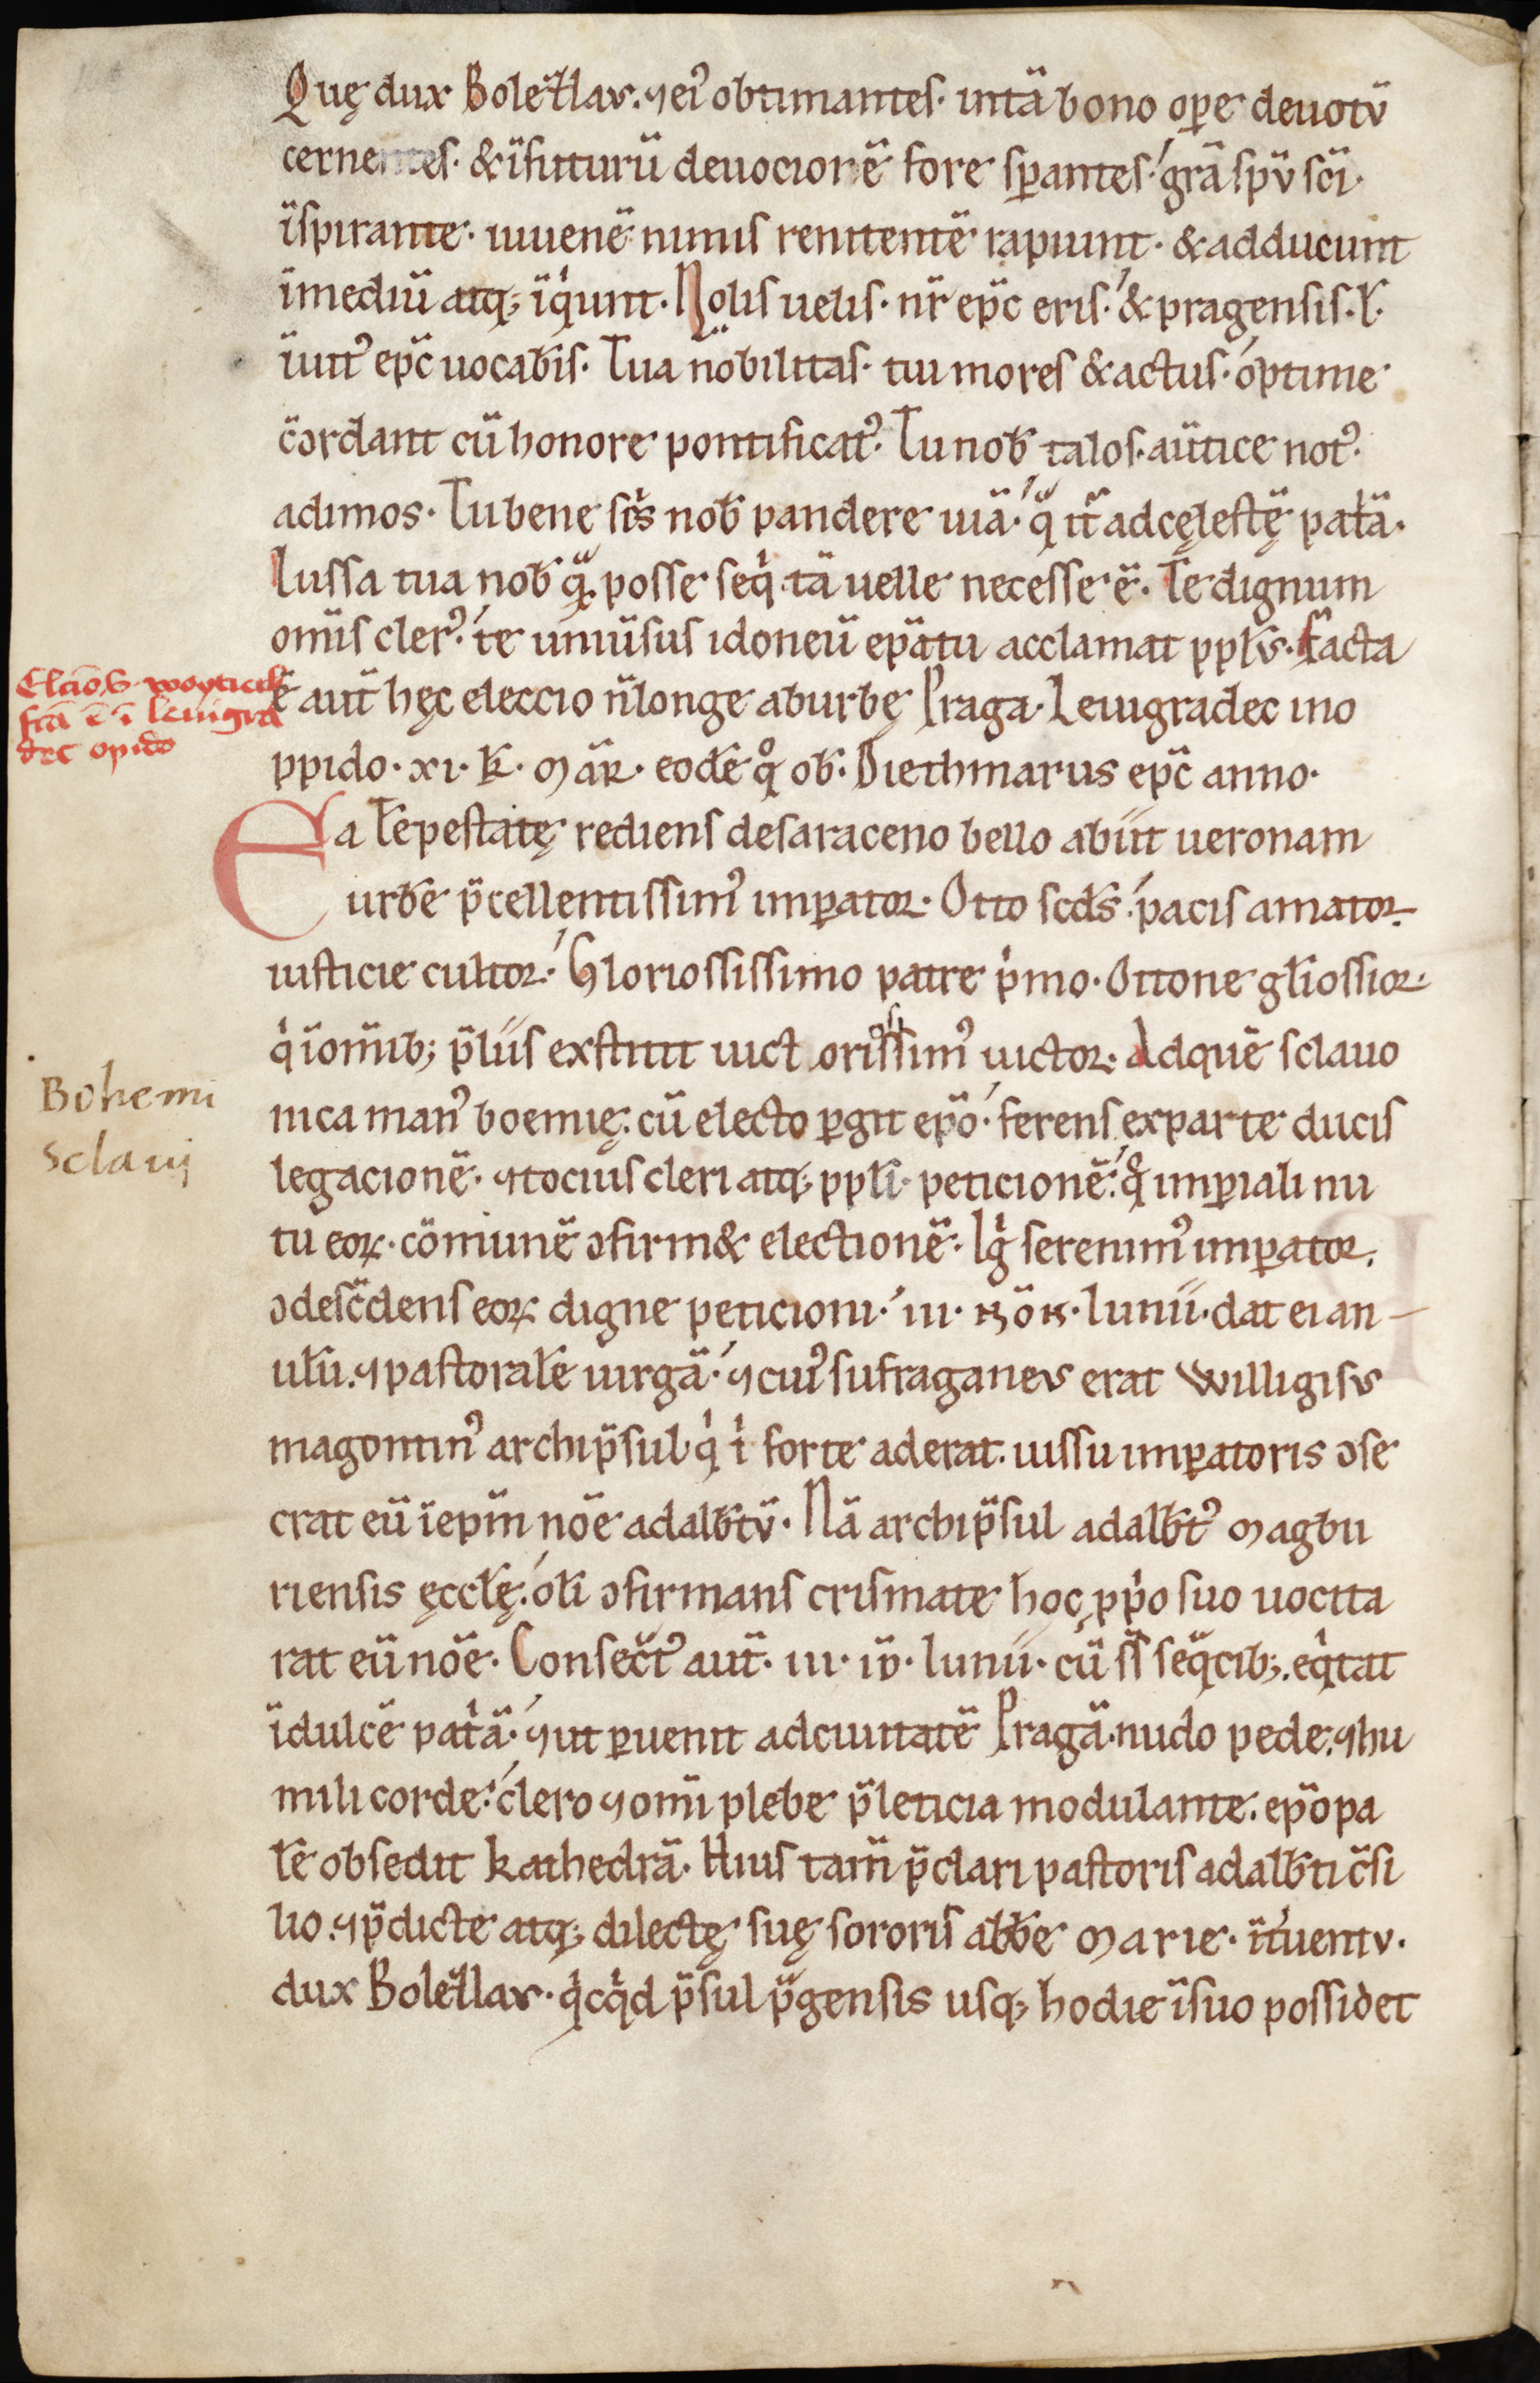 Quę dux Bolezlaꝰ. ⁊ eiꝰ obtimantes. intã bono oꝑe deuotũ
cernentes. & ĩ futurũ deuocionẽ fore sꝑantes. grã spũ scĩ.
ĩspirante. iuuenẽ nimis renitentẽ rapiunt. & adducunt
ĩ mediũ atq; ĩqͥunt. Nolis uelis. nr̃ epc̃ eris. & pragensis. ł.
ĩuitꝰ epc̃ uocab̃is. Tua nobilitas. tui mores & actus. optime
c̃cordant cũ honore pontificatꝰ. Tu nob̃ talos. a ũtice notꝰ.
adimos. Tu bene scͥs nob̃ pandere uiã. qͣ it̃ ad cęlestę̃ patͥã.
Iussa tua nob̃ qͣ. posse seqͥ. tã uelle necesse ẽ. Te dignum
om̃is clerꝰ. te uniũsus idoneũ epãtu acclamat ppl̃s. Facta
Elcĩo S. woytiech
ẽ aut̃ hęc eleccio ñ longe ab urbę Praga. Leuigradec in o
fcã ẽ ĩ leuigra
dec opido
ppido. xi. k̃. mar̃. eodẽ qͦ ob̃. Diethmarus epc̃ anno.
Ea tẽpestatę rediens de saraceno bello abiit ueronam
urbẽ p̃cellentissimꝰ imꝑator. Otto scd̃s. pacis amator.
iusticie cultor. Gloriossissimo patre pͥmo. Ottone gl̃iossior.
qͥ ĩ om̃ib; p̃liis exstitit uictoriosissimꝰ uictor. Ad quẽ sclauo
Bohemi
nica manꝰ boemię. cũ electo ꝑgit epõ. ferens ex parte ducis
Sclauj
legacionẽ. ⁊ tocius cleri atq; ppl̃i. peticionẽ. qͦ imꝑiali nu
tu eoꝝ. cõmunẽ ↄfirm& electionẽ. Igͥ serenimꝰ imꝑator.
ↄdesc̃dens eoꝝ digne peticioni. iii. non. Iunii. dat ei an
ulũ. ⁊ pastoralẽ uirgã. ⁊ cuiꝰ sufraganeus erat Willigisus
magontinꝰ archip̃sul qͥ iͥ forte aderat. iussu imꝑatoris ↄse
crat eũ ĩ epm̃ nõe adalb̃tũ. Nã archip̃sul adalb̃tꝰ magbu
riensis ęccl̃ę. oli ↄfirmans crismate hoc ppͥo suo uocita
rat eũ nõe. Consecr̃tꝰ aut̃. iii. id̃. Iunii. cũ s̃s seq̃cib;. eqͥtat
ĩ dulcẽ patͥã. ⁊ ut ꝑuenit ad ciuitatẽ Pragã. nudo pede. ⁊ hu
mili corde. clero ⁊ om̃i plebe p̃ leticia modulante. epõpa
lẽ obsedit kathedrã. Hius tam̃ p̃clari pastoris adalb̃ti c̃si
lio. ⁊ p̃dicte atq; dilectę suę sororis abb̃e marie. ĩtͥuentu.
dux Bolezlaꝰ. qͥcqͥd p̃sul p̃gensis usq; hodie ĩ suo possidet